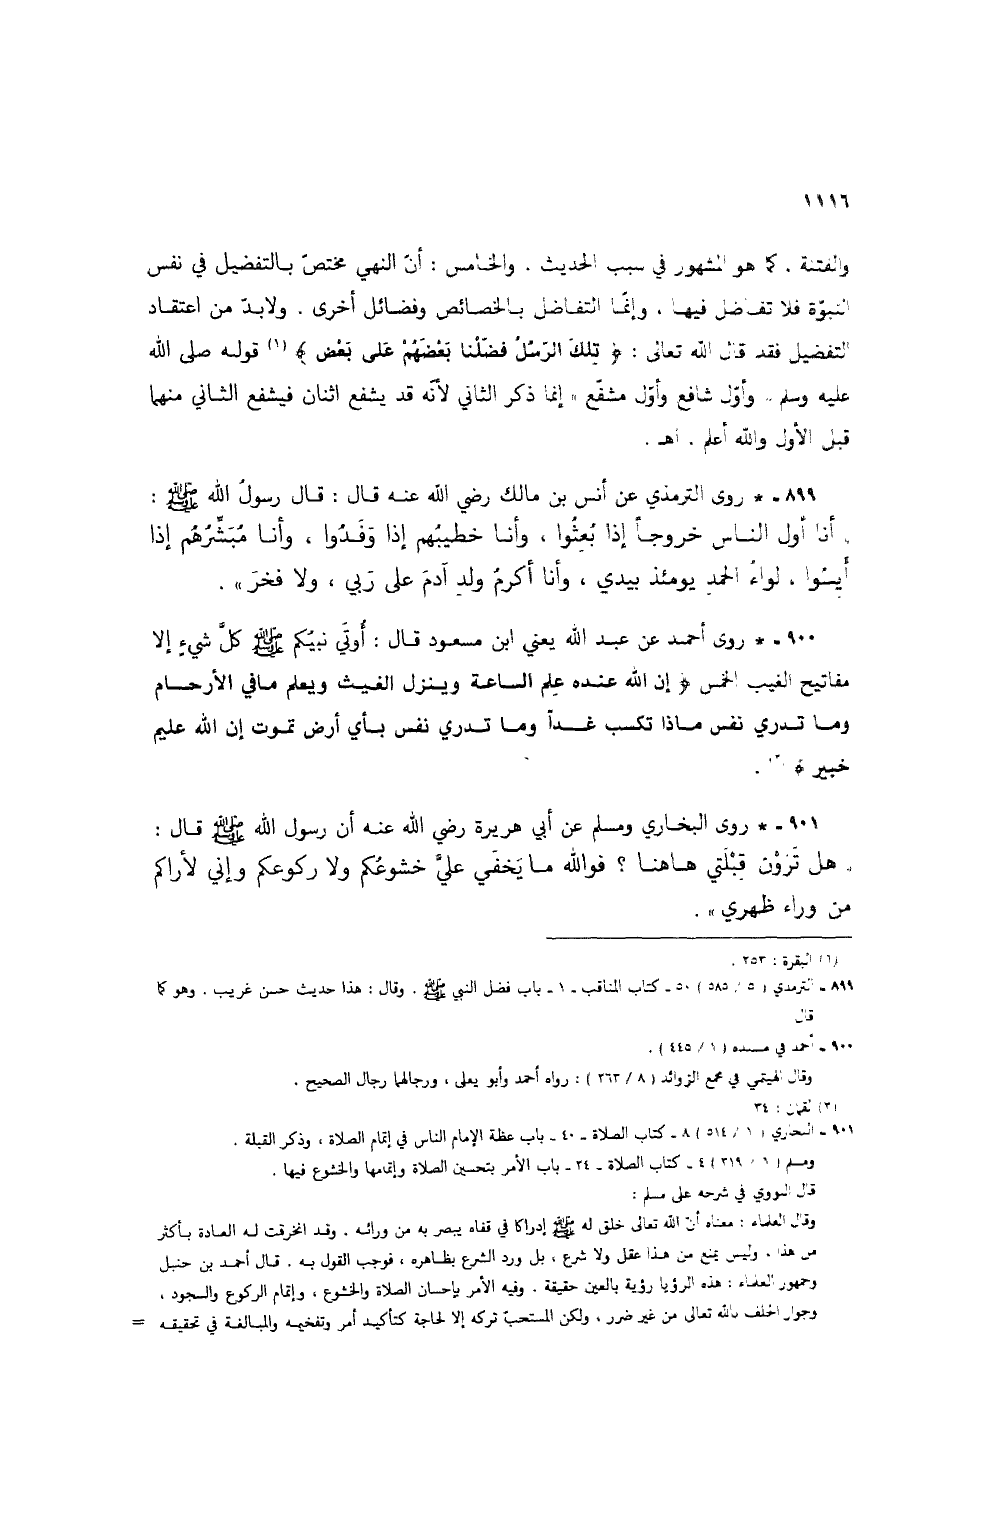 ١١١٦
والفتنة . كما هو المشهور في سبب الحديث . والخامس : أنّ النهي مختصّ بالتفضيل في نفس
النبوّة فلا تفاضل فيها ، وإنّما التفاضل بالخصائص وفضائل أخرى . ولابدّ من اعتقاد
التفضيل فقد قال الله تعالى : ﴿ تِلكَ الرّسُلُ فضّلْنا بَعْضَهُمْ عَلى بَعْض ﴾ (١) قوله صلى الله
عليه وسلم « وأوّل شافع وأوّل مشفّع » إنما ذكر الثاني لأنّه قد يشفع اثنان فيشفع الثاني منهما
قبل الأول والله أعلم . اهـ .
٨٩٩ - * روى الترمذي عن أنس بن مالك رضي الله عنه قال : قال رسولُ الله ﷺ :
« أنا أول الناس خروجاً إذا بُعِثُوا ، وأنا خطيبُهم إذا وَفَدُوا ، وأنا مُبَشِّرُهُم إذا
أيِسُوا ، لواءُ الحمدِ يومئذ بيدي ، وأنا أكرمُ ولدِ آدمَ على رَبي ، ولا فخرَ » .
٩٠٠ - * روى أحمد عن عبد الله يعني ابن مسعود قال : أُوتَي نبيُكم ﷺ كلَّ شيءٍ إلا
مفاتيح الغيب الخمس ﴿ إن الله عنده علم الساعة وينزل الغيث ويعلم مافي الأرحام
وما تدري نفس ماذا تكسب غداً وما تدري نفس بأي أرض تموت إن الله عليم
خبير ﴾ (٢) .
٩٠١ - * روى البخاري ومسلم عن أبي هريرة رضي الله عنه أن رسول الله ﷺ قال :
« هل تَرَوْن قِبْلَتي هاهنا ؟ فوالله ما يَخفَي عليَّ خشوعُكم ولا ركوعكم وإني لأراكم
من وراء ظهري » .
(١) البقرة : ٢٥٣ .
٨٩٩ - الترمذي ( ٥ / ٥٨٥ ) ٥٠ - كتاب المناقب - ١ - باب فضل النبي ﷺ . وقال : هذا حديث حسن غريب . وهو كما
قال
٩٠٠ - أحمد في مسنده ( ١ / ٤٤٥ ) .
وقال الهيثمي في مجمع الزوائد ( ٨ / ٢٦٣ ) : رواه أحمد وأبو يعلى ، ورجالهما رجال الصحيح .
(٢) لقمان : ٣٤
٩٠١ - البخاري ( ١ / ٥١٤ ) ٨ - كتاب الصلاة - ٤٠ - باب عظة الإمام الناس في إتمام الصلاة ، وذكر القبلة .
ومسلم ( ١ / ٣١٩ ) ٤ - كتاب الصلاة - ٢٤ - باب الأمر بتحسين الصلاة وإتمامها والخشوع فيها .
قال النووي في شرحه على مسلم :
وقال العلماء : معناه أنّ الله تعالى خلق له ﷺ إدراكا في قفاه يبصر به من ورائه . وقد انخرقت له العادة بأكثر
من هذا . وليس يمنع من هذا عقل ولا شرع ، بل ورد الشرع بظاهره ، فوجب القول به . قال أحمد بن حنبل
وجمهور العلماء : هذه الرؤيا رؤية بالعين حقيقة . وفيه الأمر بإحسان الصلاة والخشوع ، وإتمام الركوع والسجود ،
وجواز الحلف بالله تعالى من غير ضرر ، ولكن المستحبّ تركه إلا لحاجة كتأكيد أمر وتفخيمه والمبالغة في تحقيقه =